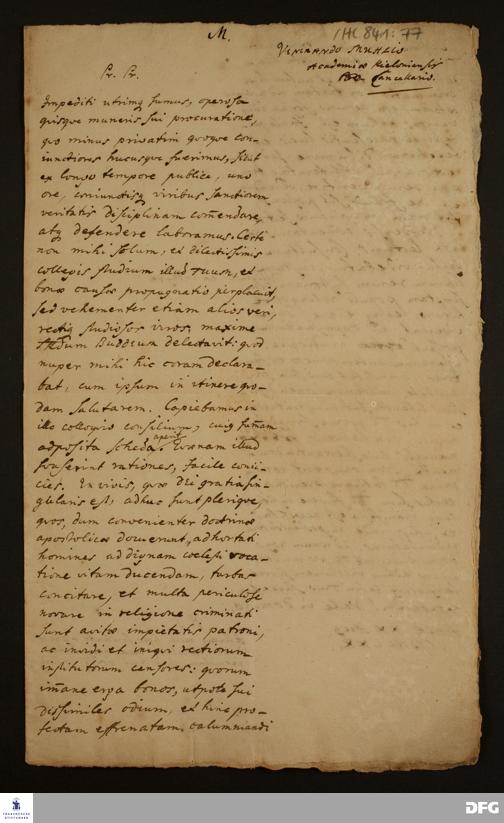 M.
1HC 841:77
VENERANDO MUHLIO
Academiæ Kieloniensis
Cancellario.
Pr. Pr.
Impediti utrimq; sumus, operosa
quisque muneris sui procuratione,
quo minus privatim quoque con-
iunctiores hucusque fuerimus, sicut
ex longo tempore publice, uno
ore, coniunctisq; viribus sanctiorem
veritatis disciplinam com̄endare,
atq; defendere laboramus. Certe
non mihi solum, et dilectissimis
collegis studium illud Tuum, et
bonæ causæ propugnatio perplacuit,
sed vehementer etiam alios veri,
rectiq; studiosos viros, maxime
BUDDEUM delectavit: quod
nuper mihi hic coram declara-
bat, cum ipsum in itinere quo-
dam salutarem. Capiebamus in
illo colloquio consilium, cuiq; sum̄am
adposita scheda aperit. Quænam illud
suaserint rationes, facile coniī-
cies. In vivis, quæ Dei gratia sin-
gularis est, adhuc sunt plerique,
quos, dum convenienter doctrinæ
apostolicæ docuerunt, adhortati
homines ad dignam coelesti voca-
tione vitam ducendam, turbas
concitare, et multa periculose
novare in religione criminati
sunt avitæ impietatis patroni,
ac invidi et iniqui rectiorum
institutorum censores: quorum
im̄ane erga bonos, utpote sui
dissimiles odium, et hinc pro-
fectam effrenatam calumniandi
FRANCKESCHE
STIFTUNGEN
DFG